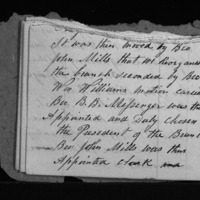 It was then moved by Bro
John Mills that we disorganize
the branch seconded by Bro
Wm Williams motion carried
Bro B. B. Messenger was then
Appointed and Duly chosen
the President of the Branch
Bro John Mills was then
Appointed Clark and